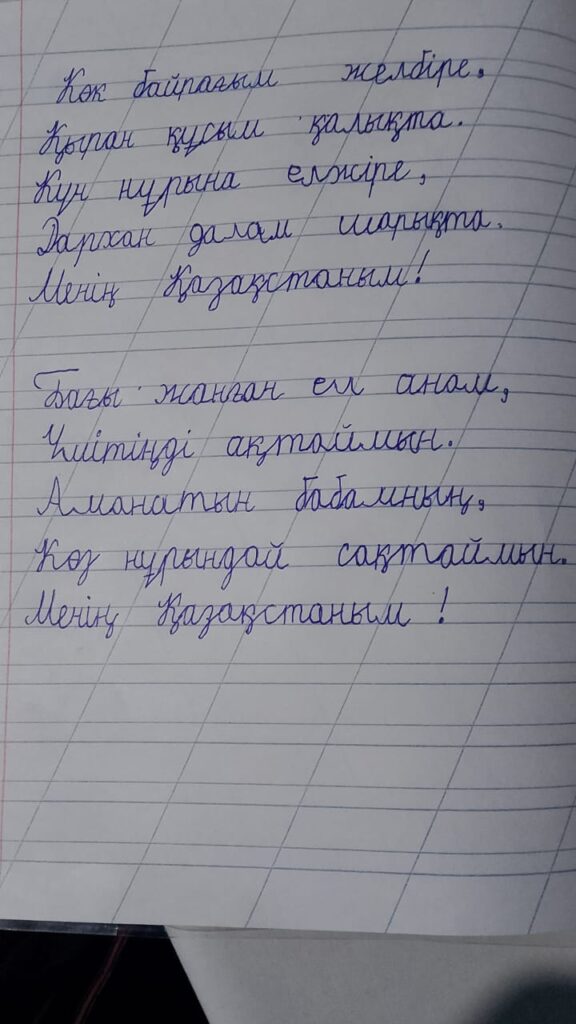 Көк байрағым желбіре,
Қыран құсым қалықта.
Күн нұрына елжіре,
Дархан далам шарықта.
Менің Қазақстаным!
Бағы жанған ел анам,
Үмітіңді ақтаймын.
Аманатын бабамның,
Көз нұрындай сақтаймын.
Менің Қазақстаным!